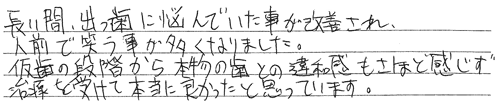 長い間、出っ歯に悩んでいた事が改善され、
人前で笑う事が多くなりました。
仮歯の段階から本物の歯との違和感もさほど感じず
治療を受けて本当に良かったと思っています。